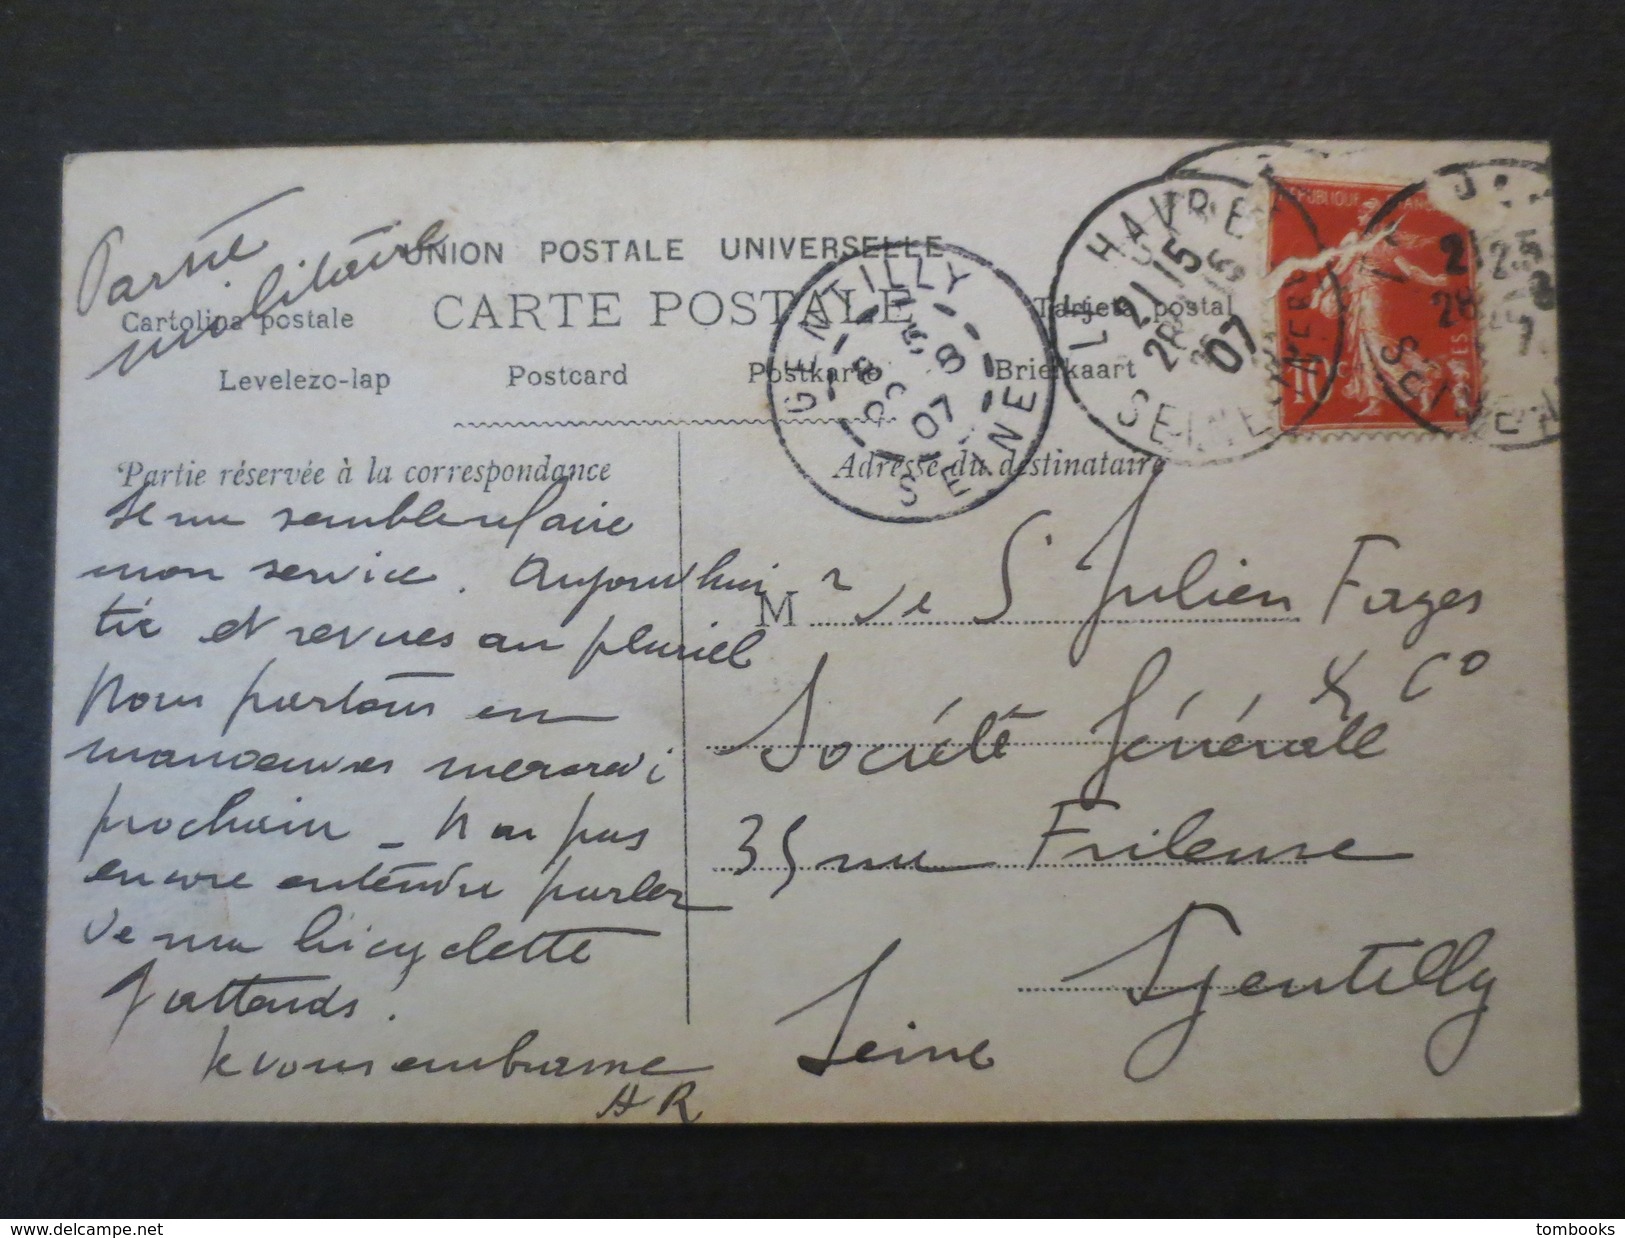 Partie
militaire
UNION POSTALE UNIVERSELLE
CARTE POSTALE
Cartolina postale
Tarjeta postal
Levelezo-lap Postcard Postkarte Briefkaart
Partie réservée à la correspondance
Adresse du destinataire
Je me semble refaire
mon service. Aujourd'hui
tir et revues au pluriel
Nous partons en
manoeuvres mercredi
prochain - N'ai pas
encore entendre parler
de ma bicyclette
J'attends.
Je vous embrasse
AR
M r de St Julien Fages
& Co
Société Générale
35 rue Frileuse
Gentilly
Seine
GENTILLY
07
SEINE
LE HAVRE
21 15
28
07
SEINE-INFRE
REPUBLIQUE FRANC
10
POSTES
delcampe.net
tombooks